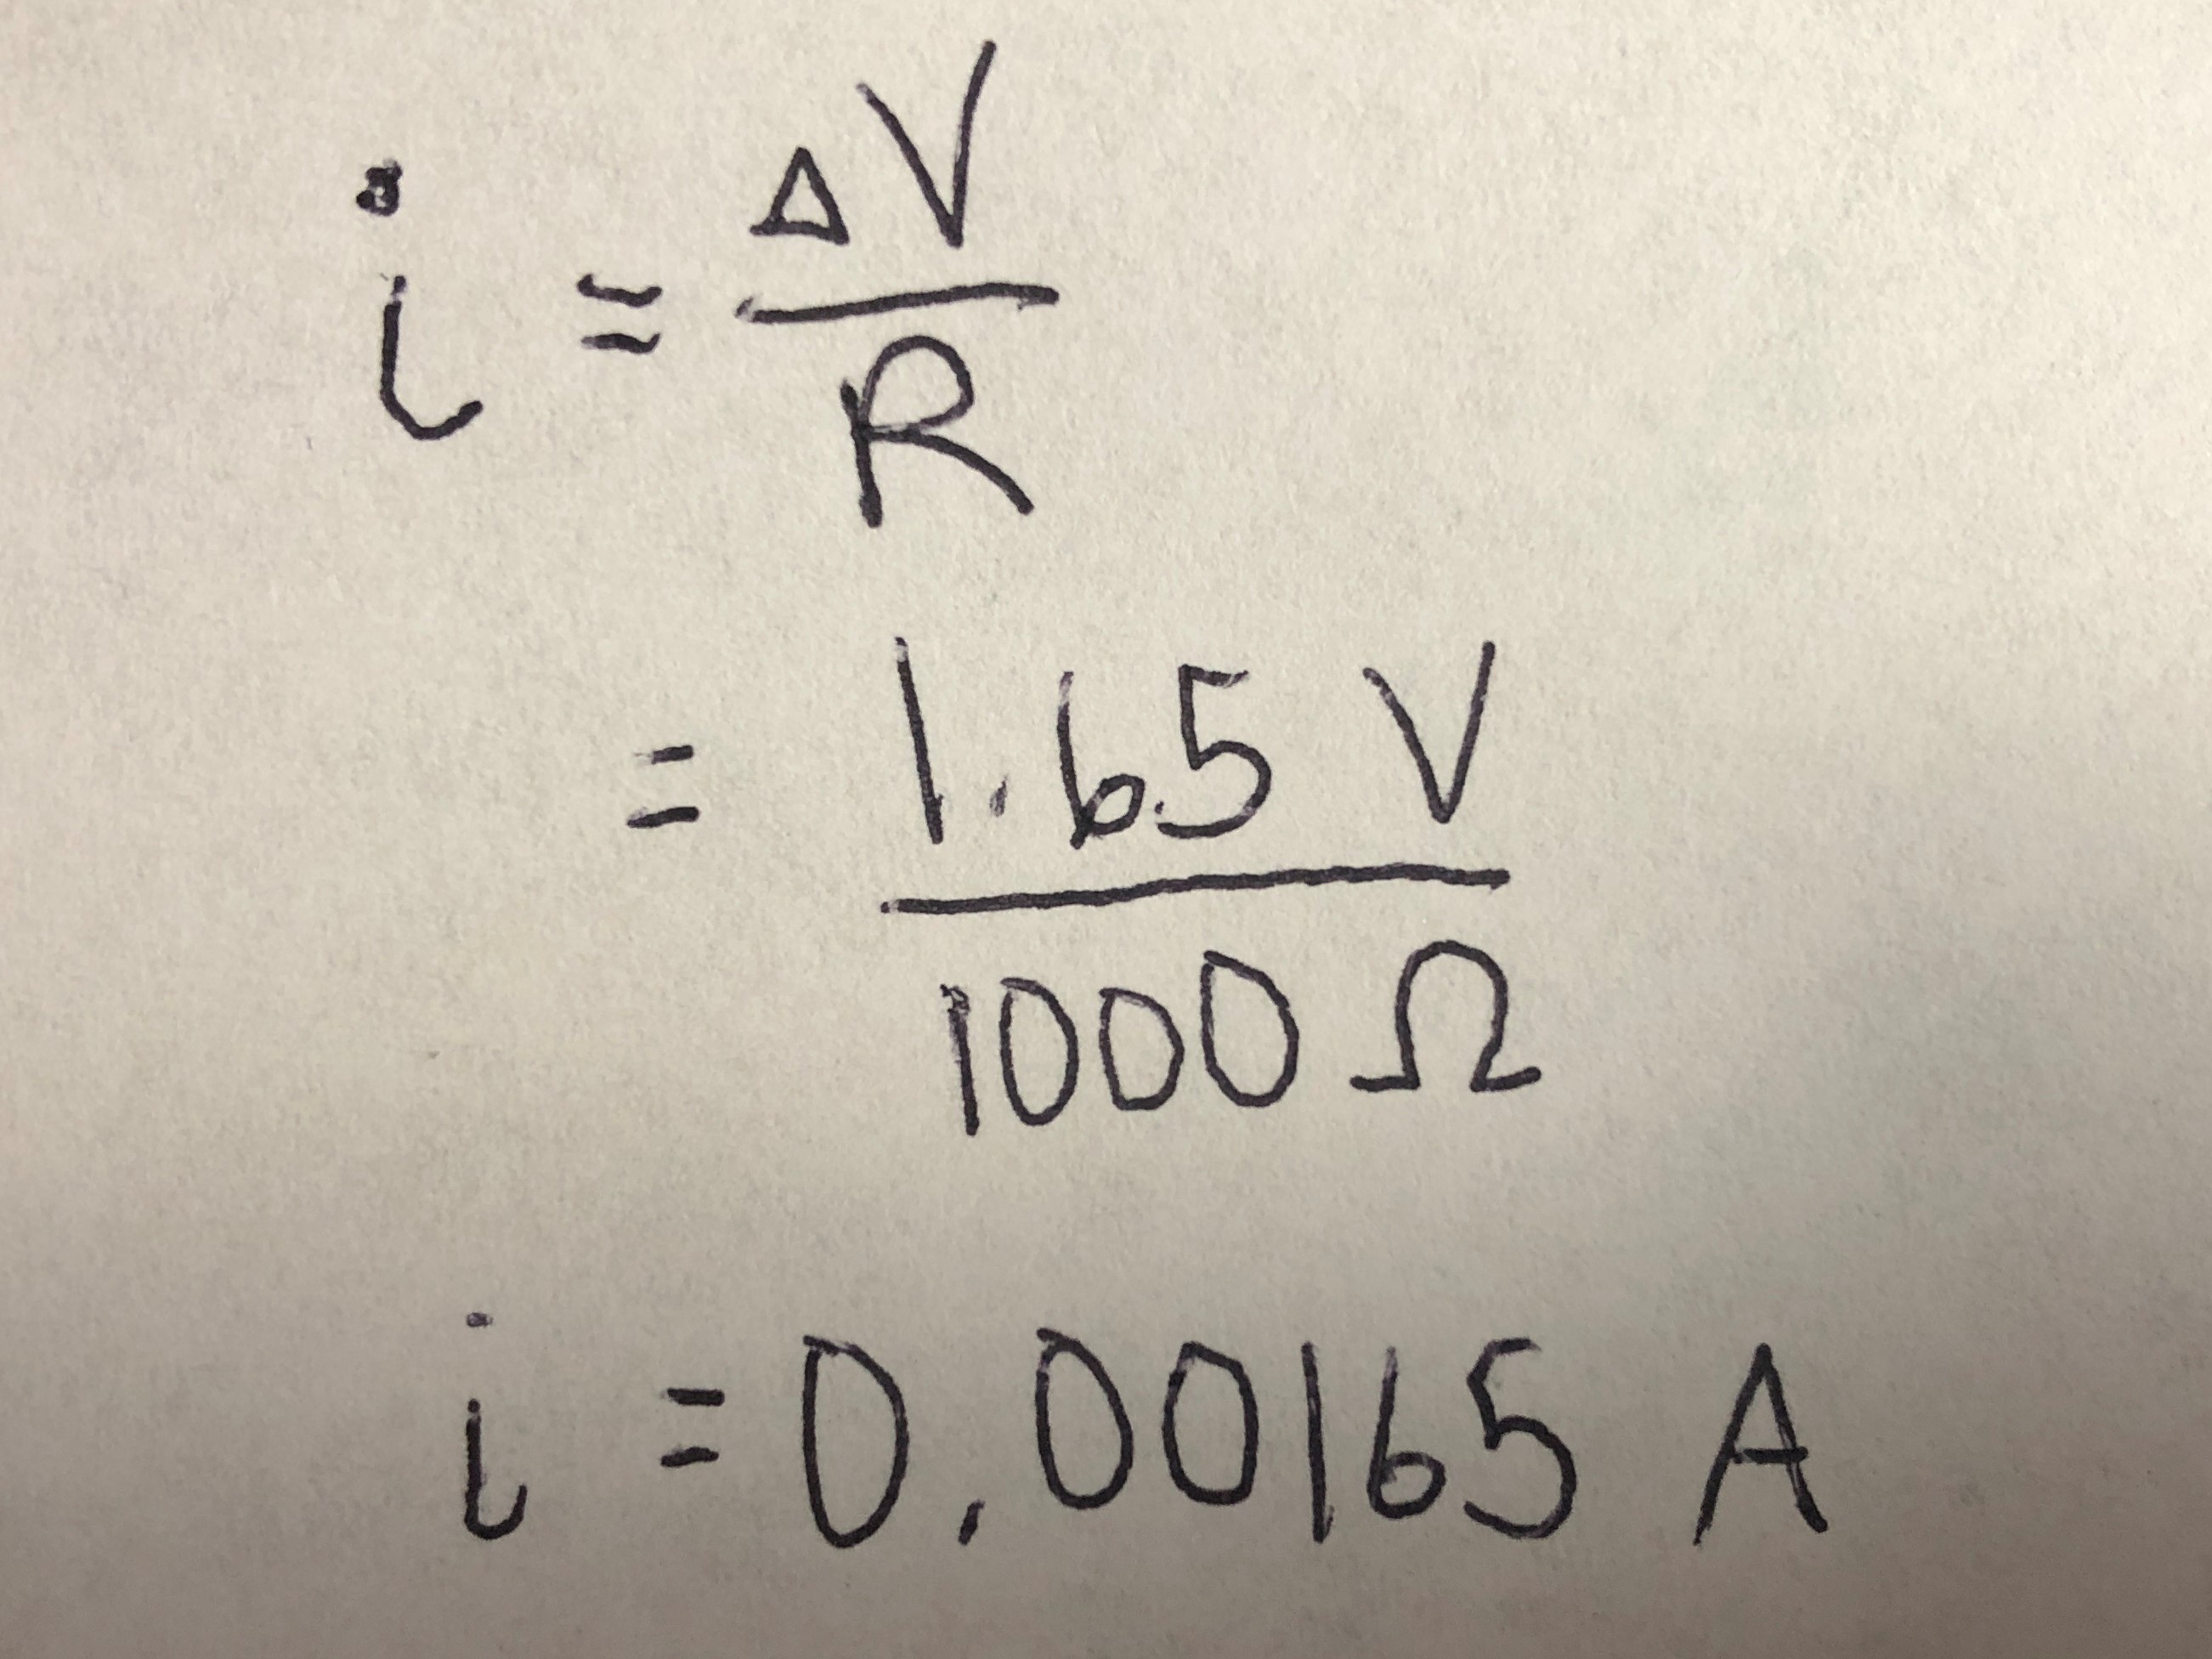 i = ΔV / R
= 1.65 V / 1000 Ω
i = 0.00165 A